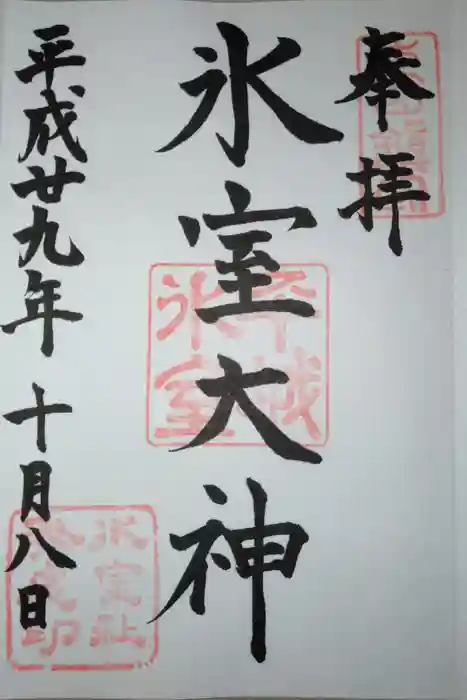 奉拝
氷室大神
平成廿九年 十月八日
平城
氷室
氷室社